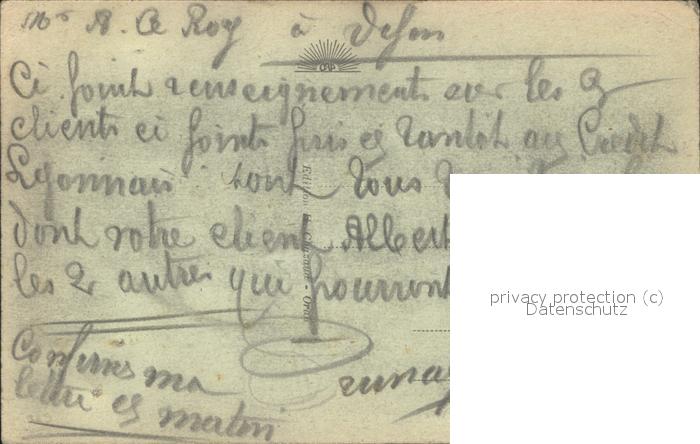 Mr A. Le Roy à Dijon
CAP
Ci joint renseignements sur les 3
clients ci joints pris ce tantôt au Crédit
Lyonnais sont tous
dont votre client Albert
les 2 autres qui pourront
Confirme ma
lettre ce matin
Edition - Oran
privacy protection (c)
Datenschutz